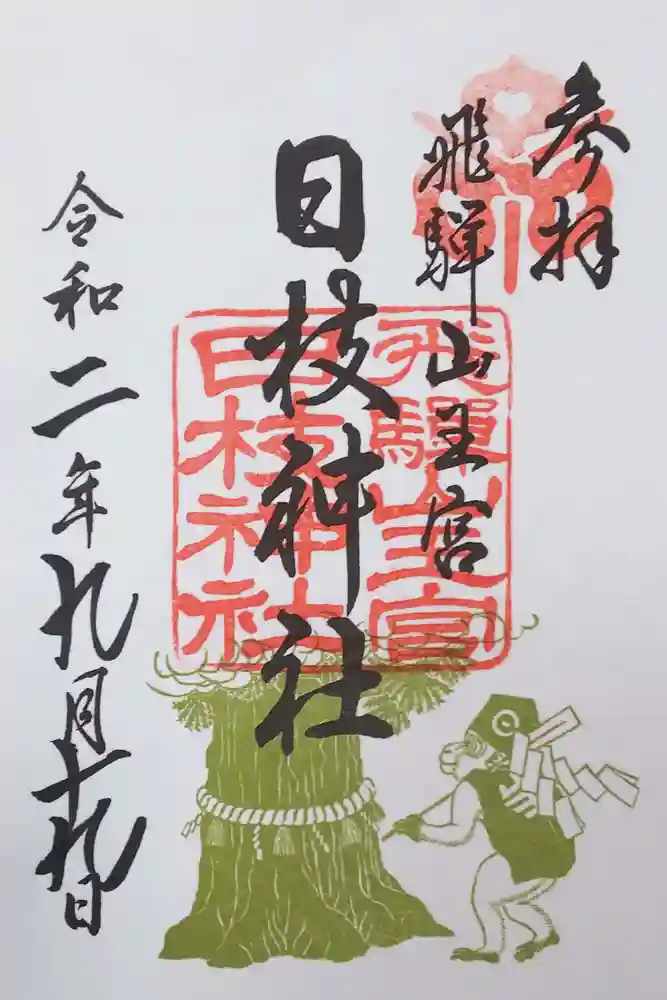 参拝
飛騨山王宮
日枝神社
飛騨山王宮
日枝神社
令和二年九月十九日